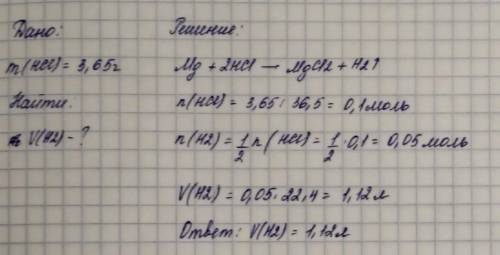 Дано:
m(HCl) = 3,65г
Найти:
V(H2) - ?
Решение:
Mg + 2HCl → MgCl2 + H2↑
n(HCl) = 3,65 : 36,5 = 0,1 моль
n(H2) = 1/2 n(HCl) = 1/2 · 0,1 = 0,05 моль
V(H2) = 0,05 · 22,4 = 1,12 л
Ответ: V(H2) = 1,12 л